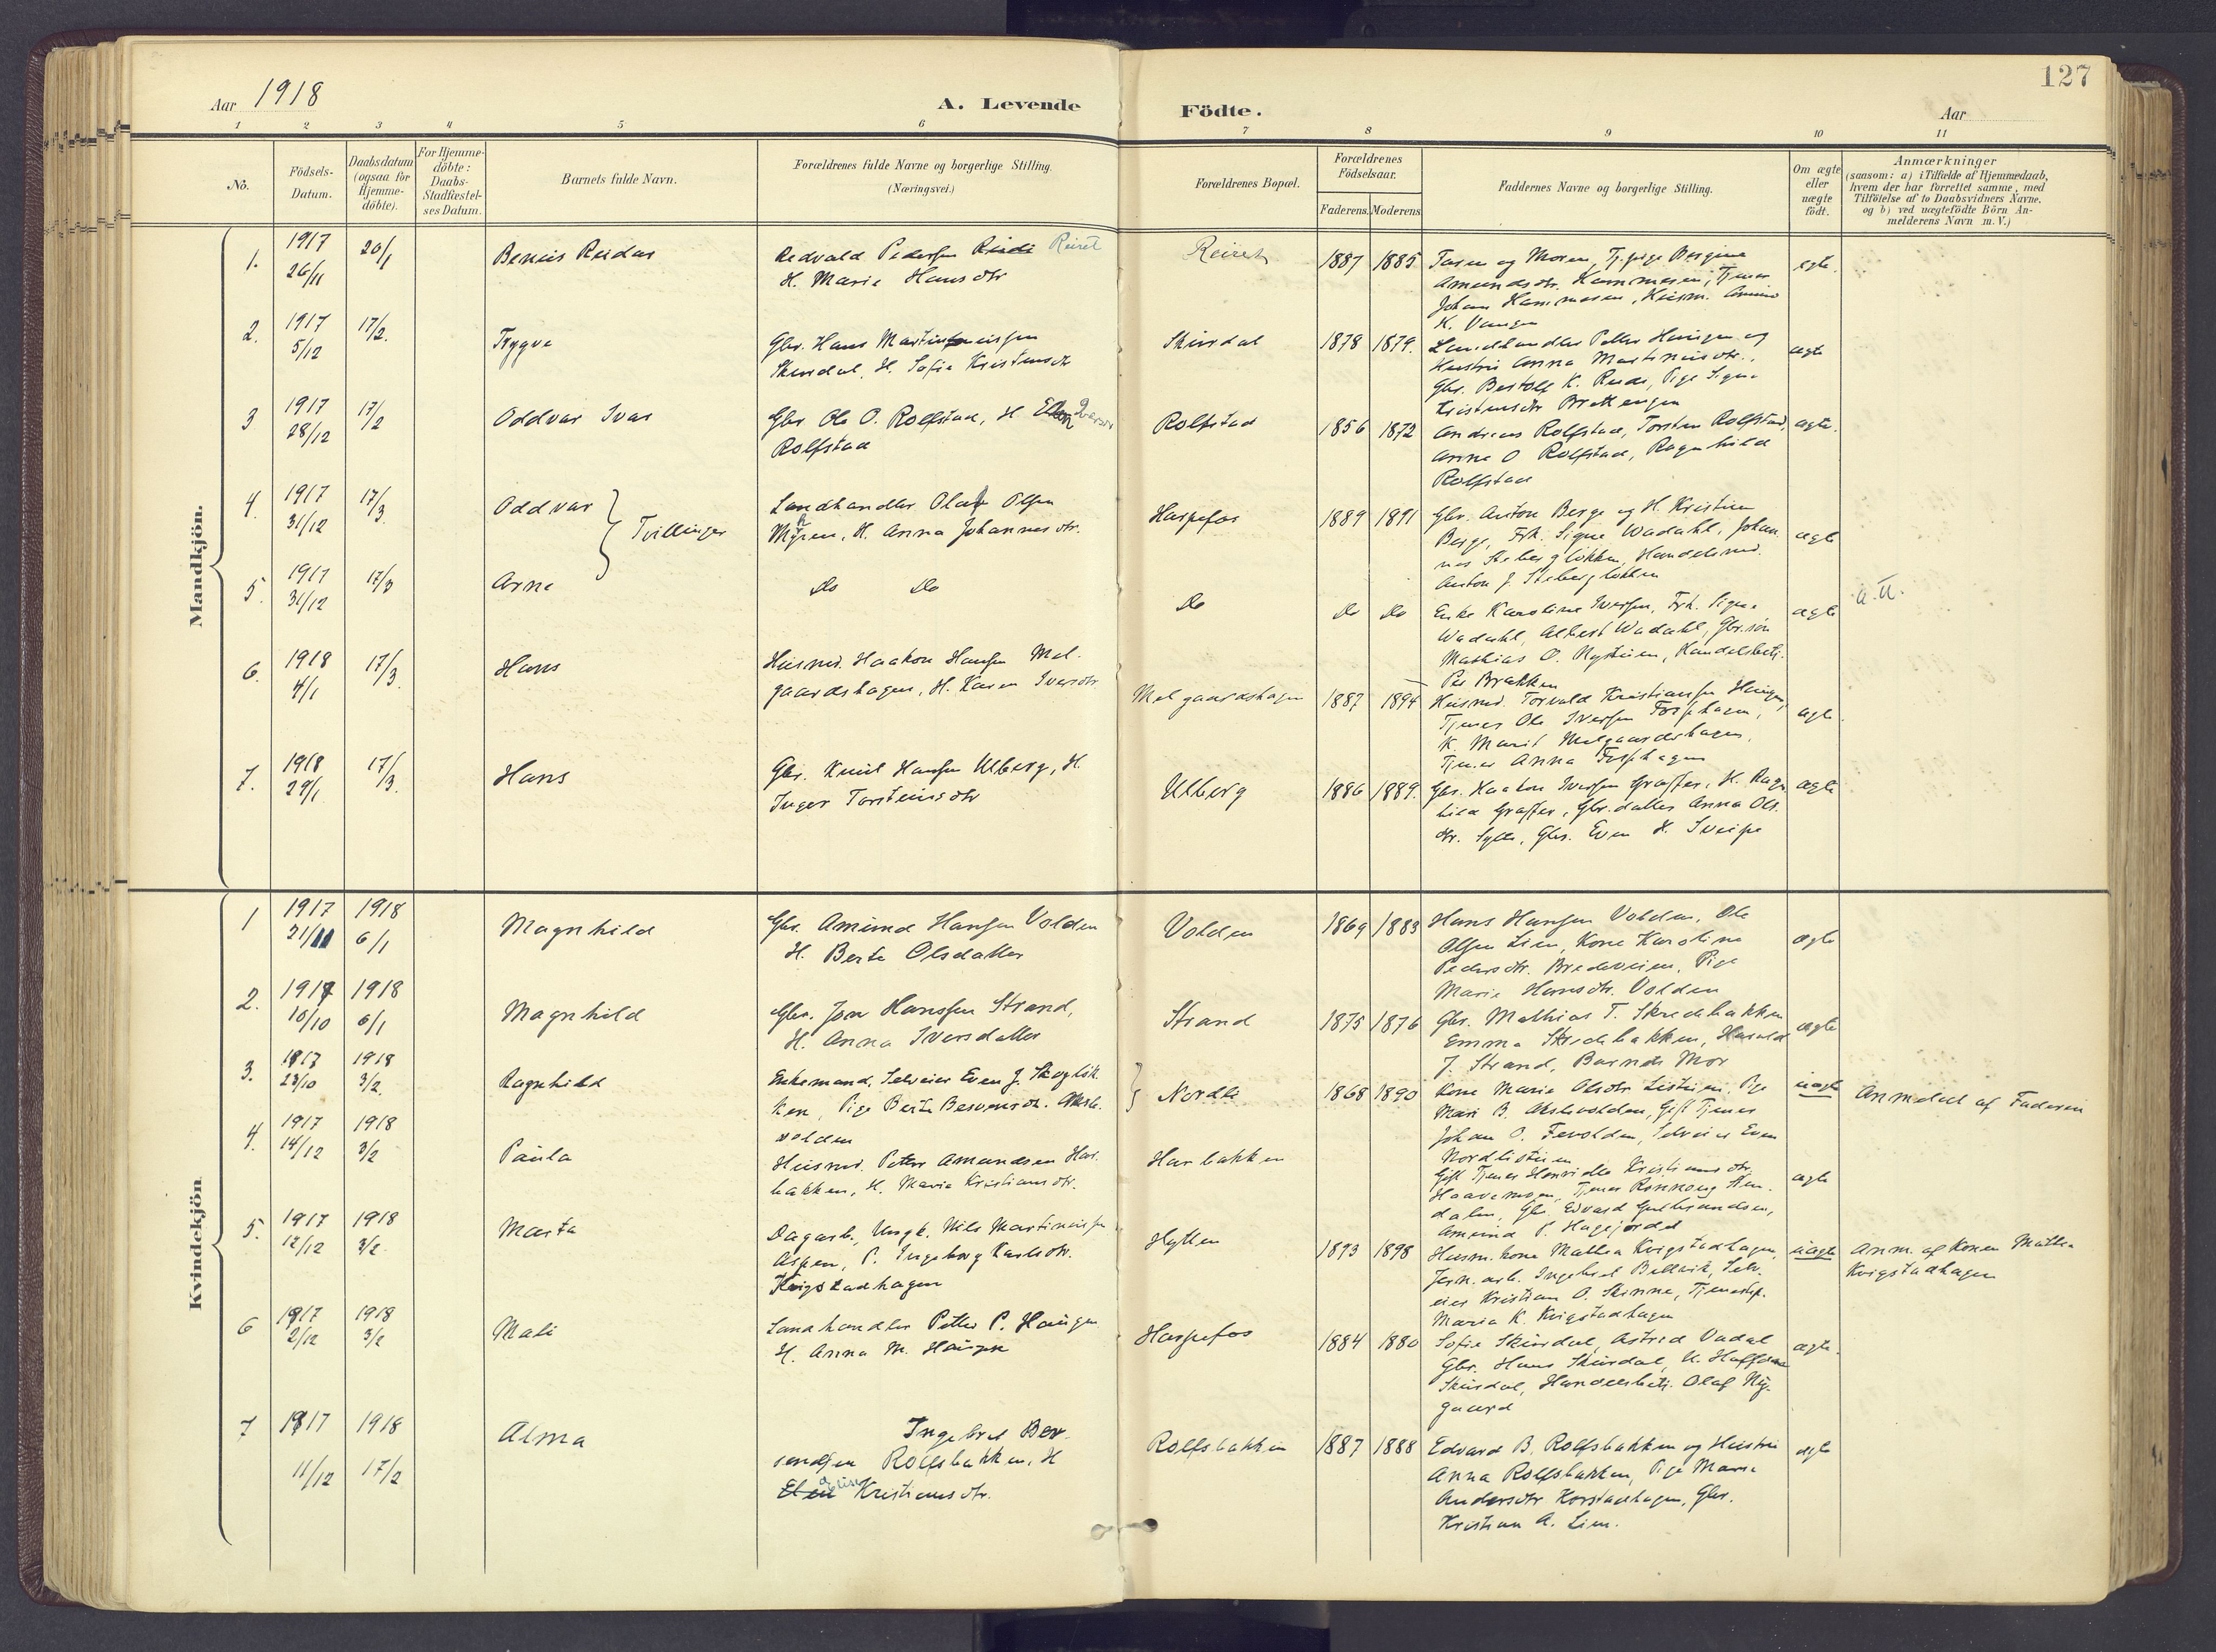 127
Aar 1918
A. Levende Födte.
Aar
1 2 3 4 5 6 7 8 9 10 11
No.
Födsels-Datum.
Daabsdatum (ogsaa for Hjemme-döbte).
For Hjemme-döbte: Daabs-Stadfæstel-ses Datum.
Barnets fulde Navn.
Forældrenes fulde Navne og borgerlige Stilling.
(Næringsvei.)
Forældrenes Bopæl.
Forældrenes Födselsaar.
Faderens. Moderens.
Faddernes Navne og borgerlige Stilling.
Om ægte eller uægte födt.
Anmærkninger
(saasom: a) i Tilfælde af Hjemmedaab, hvem der har forrettet samme, med Tilföielse af to Daabsvidners Navne. og b) ved uægtefödte Börn An-melderens Navn m. V.)
Mandkjön.
1. 1917 26/11 20/1 Reidar
Redvald Pedersen Reiret
H. Marie Hansdtr
Reiret 1887 1885
Amundsdtr. Hammeren, Tjener
Johan Hammeren, Husm.
K. Vangen
2. 1917 5/12 17/2. Trygve
Gbr. Hans
Skurdal, H. Sofie Kristensdtr
Skurdal 1878 1879.
Landhandler Petter Haugen og
Hustru Anna Martinusdtr.,
Gbr. Bertolf K. Rude, Pige Signe
Kristensdtr Brekkengen
ægte
3 1917 28/12 17/2 Oddvar Ivar
Gbr Ole O. Rolfstad, H.
Rolfstad
Rolfstad 1856 1872
Andreas Rolfstad, Torsten Rolfstad,
Anne O Rolfstad, Ragnhild
Rolfstad
ægte.
4. 1917 31/12 17/3. Oddvar } Tvillinger
Landhandler Olaf Olsen
H. Anna Johannesdtr.
Harpefos 1889 1891
Gbr. Anton Berge og H. Kristine
Berge, Frk. Signe Wadahl, Johan
nes Stebergløkken, Handelsmd.
Anton J. Stebergløkken
ægte
5. 1917 31/12 17/3 Arne
Do Do
Do Do Do
Enke Karoline Iversen, Frk. Signe
Wadahl, Albert Wadahl, Gbr.søn
Mathias O. Nystuen, Handelsbetj.
Per Brekken
ægte
6. 1918 4/1 17/3. Hans
Husmd. Haakon Hansen Mel-
gaardshagen, H. Karen Iversdtr.
Melgaardshagen 1887 1894
Husmd. Torvald Kristiansen Haugen,
Tjener Ole Iversen
K. Marit Melgaardshagen,
Tjener Anna
ægte
7. 1918 29/1. 17/3. Hans
Gbr. Knut Hansen Ulberg, H.
Inger Torsteinsdtr
Ulberg 1886 1889.
Gbr. Haakon Iversen Graffer, H. Ragn
hild Graffer, Gbr.datter Anna Ols
dtr. Sylte, Gbr. Even H. Sveipe
ægte
Kvindekjön
1 1917 21/11 1918 6/1 Magnhild
Gbr. Amund Hansen Volden
H. Berte Olsdatter
Volden 1869 1883
Hans Hansen Volden, Ole
Olsen Lien, Kone Karoline
Pedersdtr. Bredeveien, Pige
Marie Hansdtr. Volden
ægte
2. 1917 10/10 1918 6/1 Magnhild
Gbr. Jon Hanssen Strand,
H. Anna Iversdatter
Strand 1875 1876
Gbr. Mathias T. Skredebakken
Emma Skredebakken, Harald
J. Strand, Barnets Mor
ægte
3. 1917 23/10 1918 3/2. Ragnhild
Enkemand, Selveier Even J. Skogløk
ken, Pige Berte
volden
} Nordli 1868 1890
Kone Marie Olsdtr Listuen, Pige
Mari B. Gift Tjener
Johan O. Fevolden, Selveier Even
Nordlistuen
uægte
Anmeldt af Faderen
4. 1917 14/12 1918 3/2 Paula
Husmd. Petter Amundsen Har
bakken, H. Marie Kristiansdtr.
Harbakken
Gift Tjener Kristiansdtr.
Tjener Rønnaug
dalen, Gbr. Edvard Gulbrandsen,
Amund P. Hagejordet
ægte
5. 1917 12/12 1918 3/2 Marta
Dagarb., Ungk. Nils Martinusen
Aspen, P. Ingeborg Karlsdtr.
Kvigstadhagen
Hytten 1893 1898
Husm. kone Mathea Kvigstadhagen,
Jern. arb. Ingebret Selv-
eier Kristian O. Skinne, Tjenestep.
Maria K. Kvigstadhagen
uægte
Anm. af Konen Mathea
Kvigstadhagen
6 1917 2/12 1918 3/2 Mali
Landhandler Petter P. Haugen
H. Anna M. Haugen
Harpefos 1884 1880
Sofie Skurdal, Astrid Vadal
Gbr. Hans Skurdal,
Skurdal, Handelsbetj. Olaf Ny-
gaard
ægte.
7 1917 11/12 1918 17/2 Alma
Ingebret Ber-
Rolfsbakken, H
Kristiansdtr.
Rolfsbakken 1887 1888
Edvard B. Rolfsbakken og Hustru
Anna Rolfsbakken, Pige Marie
Andersdtr Korstadhagen, Gbr.
Kristian A. Lien.
ægte